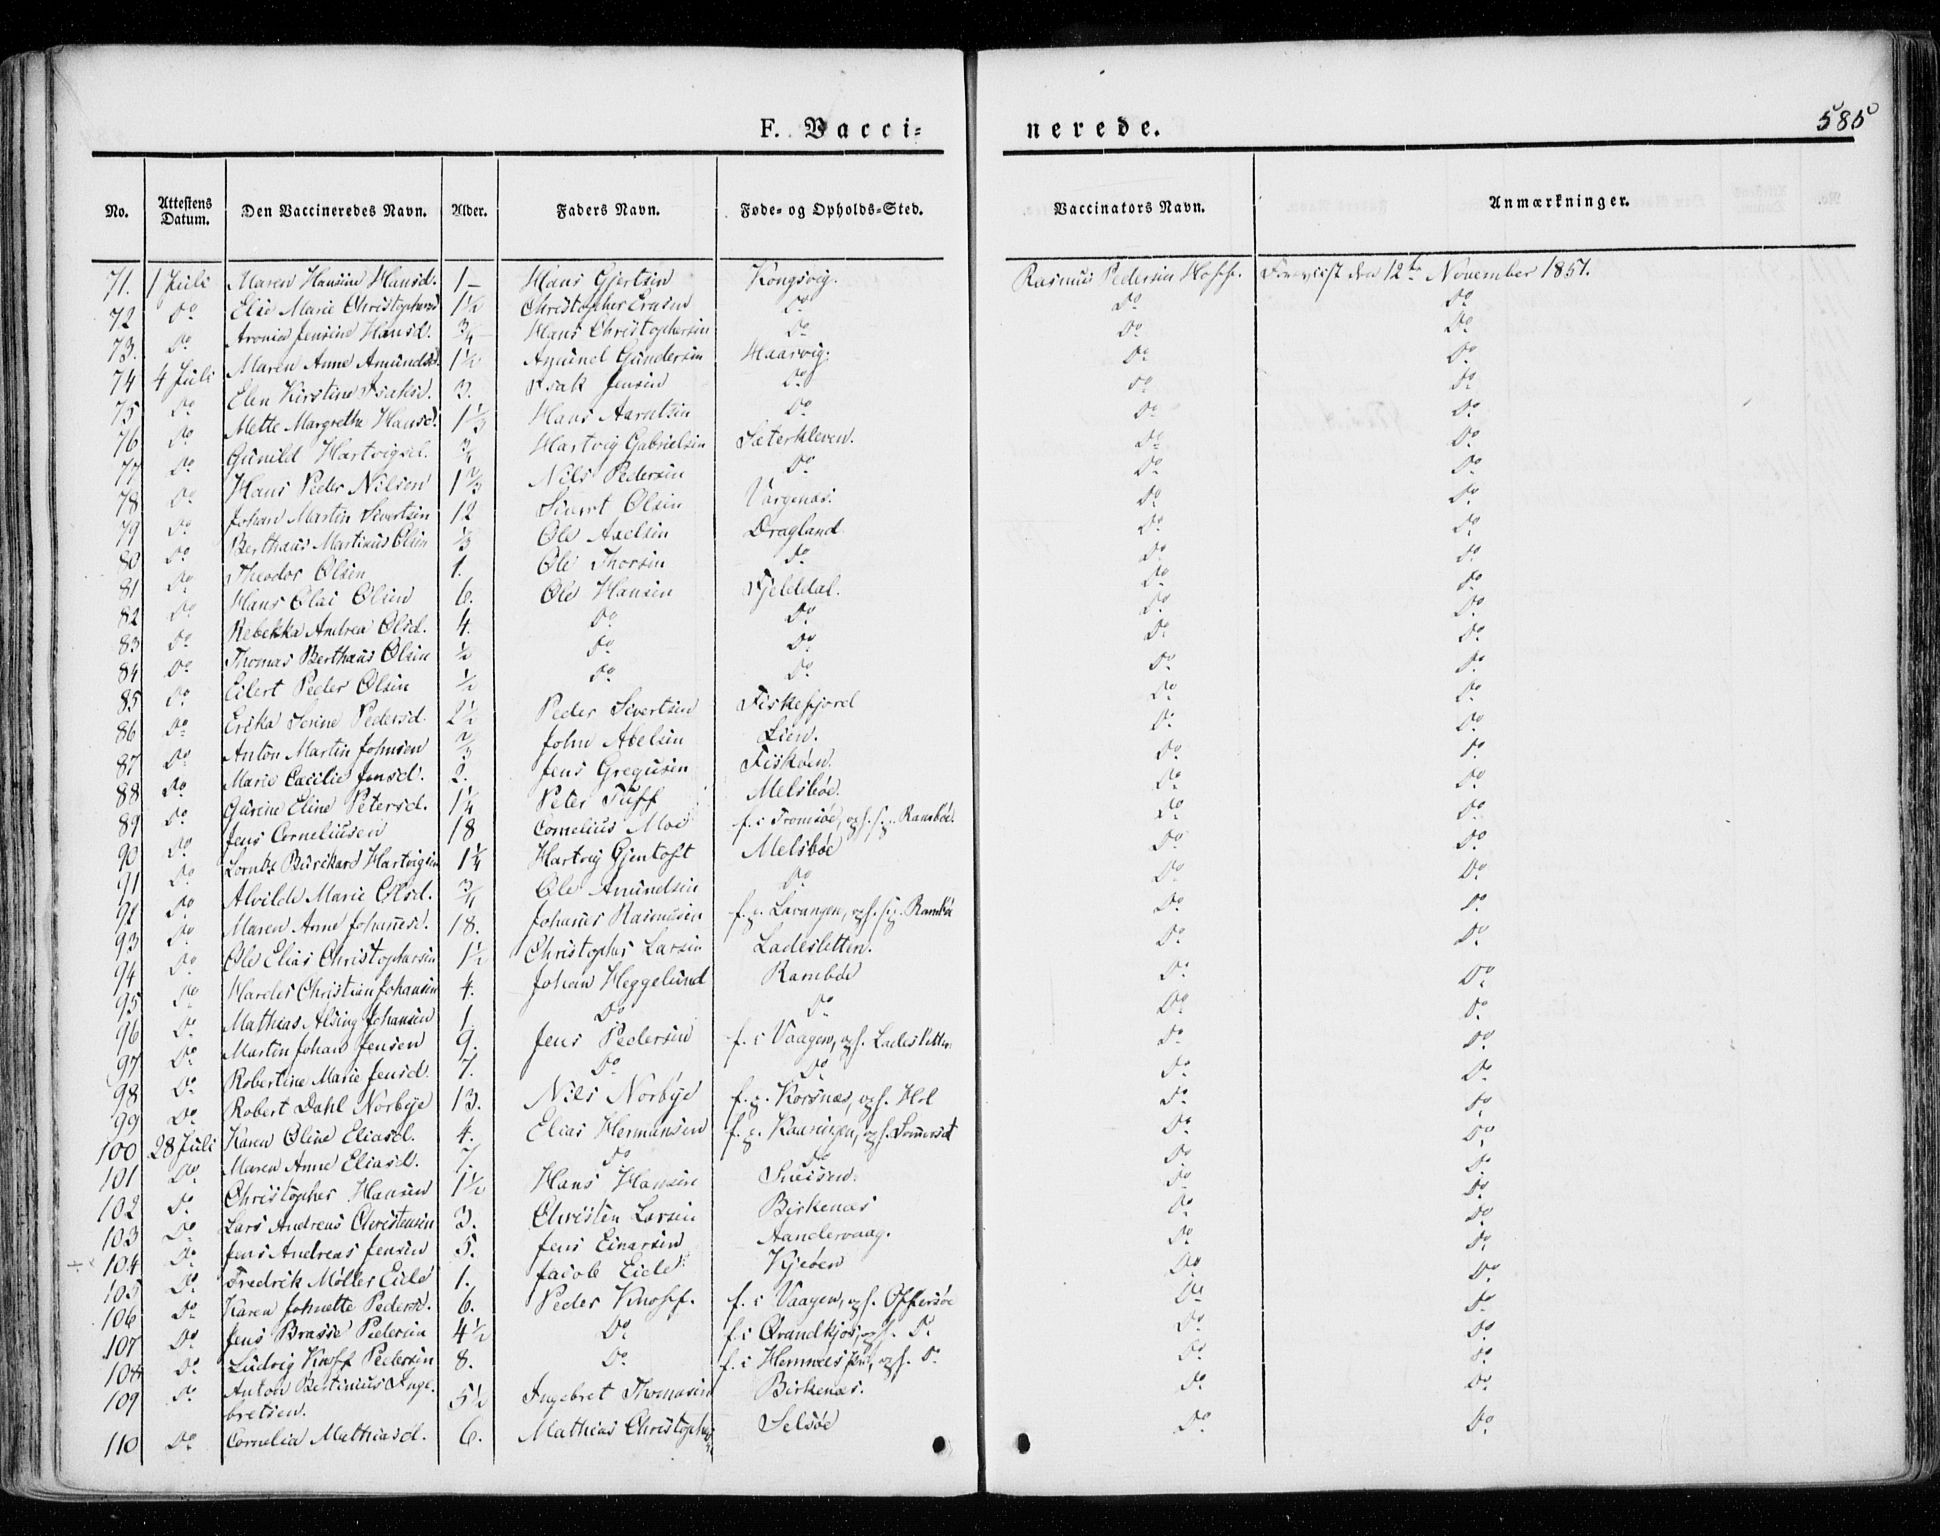 585
F. Vacci= nerede.
No. Attestens Datum. Den Vaccineredes Navn. Alder. Faders Navn. Føde- og Opholds-Sted. Vaccinators Navn. Anmærkninger.
71. 1 Juli Maren Hansine Hansd. 1 – Hans Gjertsen Kongsvig. Rasmus Pedersen Hoff. Foreviist den 12te November 1851.
72 Do Elie Marie Christophersd 1½ Christopher Do Do Do
73. Do Jensine Hansd. ¾ Hans Christophersen Do Do Do
74 4 Juli Maren Anne Amundsd. 1½ Amund Gundersen Haarvig. Do Do
75 Do Elen Kirstine Isaksd. 3. Isak Jensen Do Do Do
76 Do Mette Margrethe Hansd. 1⅓ Hans Aarntsen Do Do Do
77 Do Gunild Hartvigsd. ¾ Hartvig Gabrielsen Sæterkleven. Do Do
78 Do Hans Peder Nilsen 1⅔ Nils Pedersen Do Do Do
79 Do Johan Martin Sivertsen 12 Sivert Olsen Vargenæs. Do Do
80 Do Berthaus Martinus Olsen ⅓ Ole Axelsen Dragland. Do Do
81 Do Theodor Olsen 1. Ole Thorsen Do Do Do
82 Do Hans Olai Olsen 6. Ole Hansen Fjelddal. Do Do
83 Do Rebekka Andrea Olsd. 4. Do Do Do Do
84 Do Thomas Berthaus Olsen ½ Do Do Do Do
85 Do Eilert Peder Olsen ½ Do Do Do Do
86 Do Erika Serine Pedersd. 2½ Peder Sivertsen Fiskefjord Do Do
87 Do Anton Martin Johnsen ⅔ John Abelsen Lien. Do Do
88 Do Marie Cæcilie Jensd. 2. Jens Gregusen Fiskøen. Do Do
89 Do Gurine Eline Petersd. 1¼ Peter Tuff Melsbøe. Do Do
90 Do Jens Corneliusen 18 Cornelius Moe f. i Tromsøe, oph. p. Rambøe. Do Do
91 Do Lornts Burchard Hartvigsen 1¼ Hartvig Gjentoft Melsbøe Do Do
92 Do Alvilde Marie Olsd. ¾ Ole Amundsen Do Do Do
93 Do Maren Anne Johannesd. 18. Johannes Rasmusen f. p. Lavangen, oph. p. Rambøe Do Do
94 Do Ole Elias Christophersen 1½ Christopher Larsen Ladesletten. Do Do
95 Do Christian Johansen 4. Johan Heggelund Rambøe Do Do
96 Do Mathias Alsing Johansen 1. Do Do Do Do
97 Do Martin Johan Jensen 9. Jens Pedersen f. i Vaagen, oph. Ladesletten. Do Do
98 Do Robertine Marie Jensd. 7. Do Do Do Do
99 Do Robert Dahl Norbye 13. Nils Norbye f. p. Korsnæs, oph. Hol Do Do
100 28 Juli Karen Oline Eliasd. 4. Elias Hermansen f. p. oph. Sommerset Do Do
101 Do Maren Anne Eliasd. 7. Do Do Do Do
102 Do Christopher Hansen 1½ Hans Hansen Sneisen. Do Do
103 Do Lars Andreas Christensen 3. Christen Larsen Birkenæs Do Do
104 Do Jens Andreas Jensen 5. Jens Einarsen Aandervaag. Do Do
105 Do Fredrik Møller Eide 1. Jacob Eide Kjeøen Do Do
106 Do Karen Johnette Pedersd. 6. Peder Knoff. f. i Vaagen, oph. Offersøe Do Do
107 Do Jens Brasse Pedersen 4½ Do f. i Qvandkjos, oph. Do Do Do
108 Do Ludvig Knoff Pedersen 8. Do f. i Hemnæs oph. Do Do Do
109 Do Anton Bertinius Inge-
bretsen. 5½ Ingebret Thomasen Birkenæs. Do Do
110 Do Cornelia Mathiasd. 6. Mathias Christophersen Selsøe Do Do